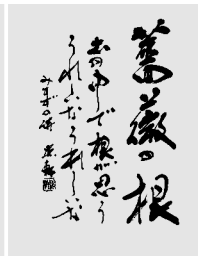 薔薇の根
土の中で根が思う
うれしいなうれしいな
みすゞの詩